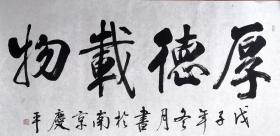 厚德載物
戊子年冬月書於南京慶平